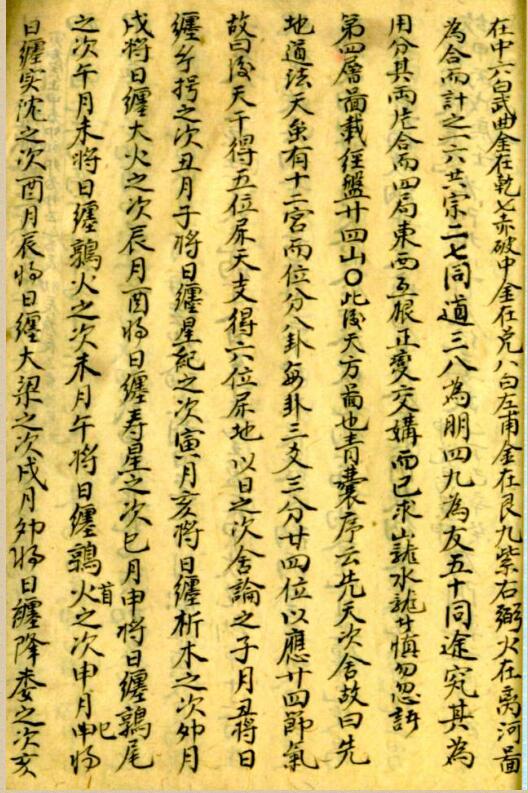 在中六白武曲金在乾七赤破中金在兌八白左甫金在艮九紫右弼火在离河啚
為合而計之一六共宗二七同道三八為朋四九為友五十同途究其為
用分其兩片合而四局東西互根正变交媾而已求山龍水龍廿慎勿忽諸
第四層啚載経盤廿四山〇此後天方啚也青囊序云先天次舍故曰先
地道法天𠅤有十二宮而位分八卦每卦三爻三分廿四位以應廿四節氣
故曰後天干得五位屎天支得六位屎地以日之次舍論之子月丑將日
纏玄枵之次丑月子將日纏星紀之次寅月亥將日纏析木之次卯月
戌將日纏大火之次辰月酉將日纏寿星之次巳月申將日纏鶉尾
之次午月未將日纏鶉火之次未月午將日纏鶉火首之次申月申巳將
日纏实沈之次酉月辰將日纏大梁之次戌月卯將日纏降娄之次亥